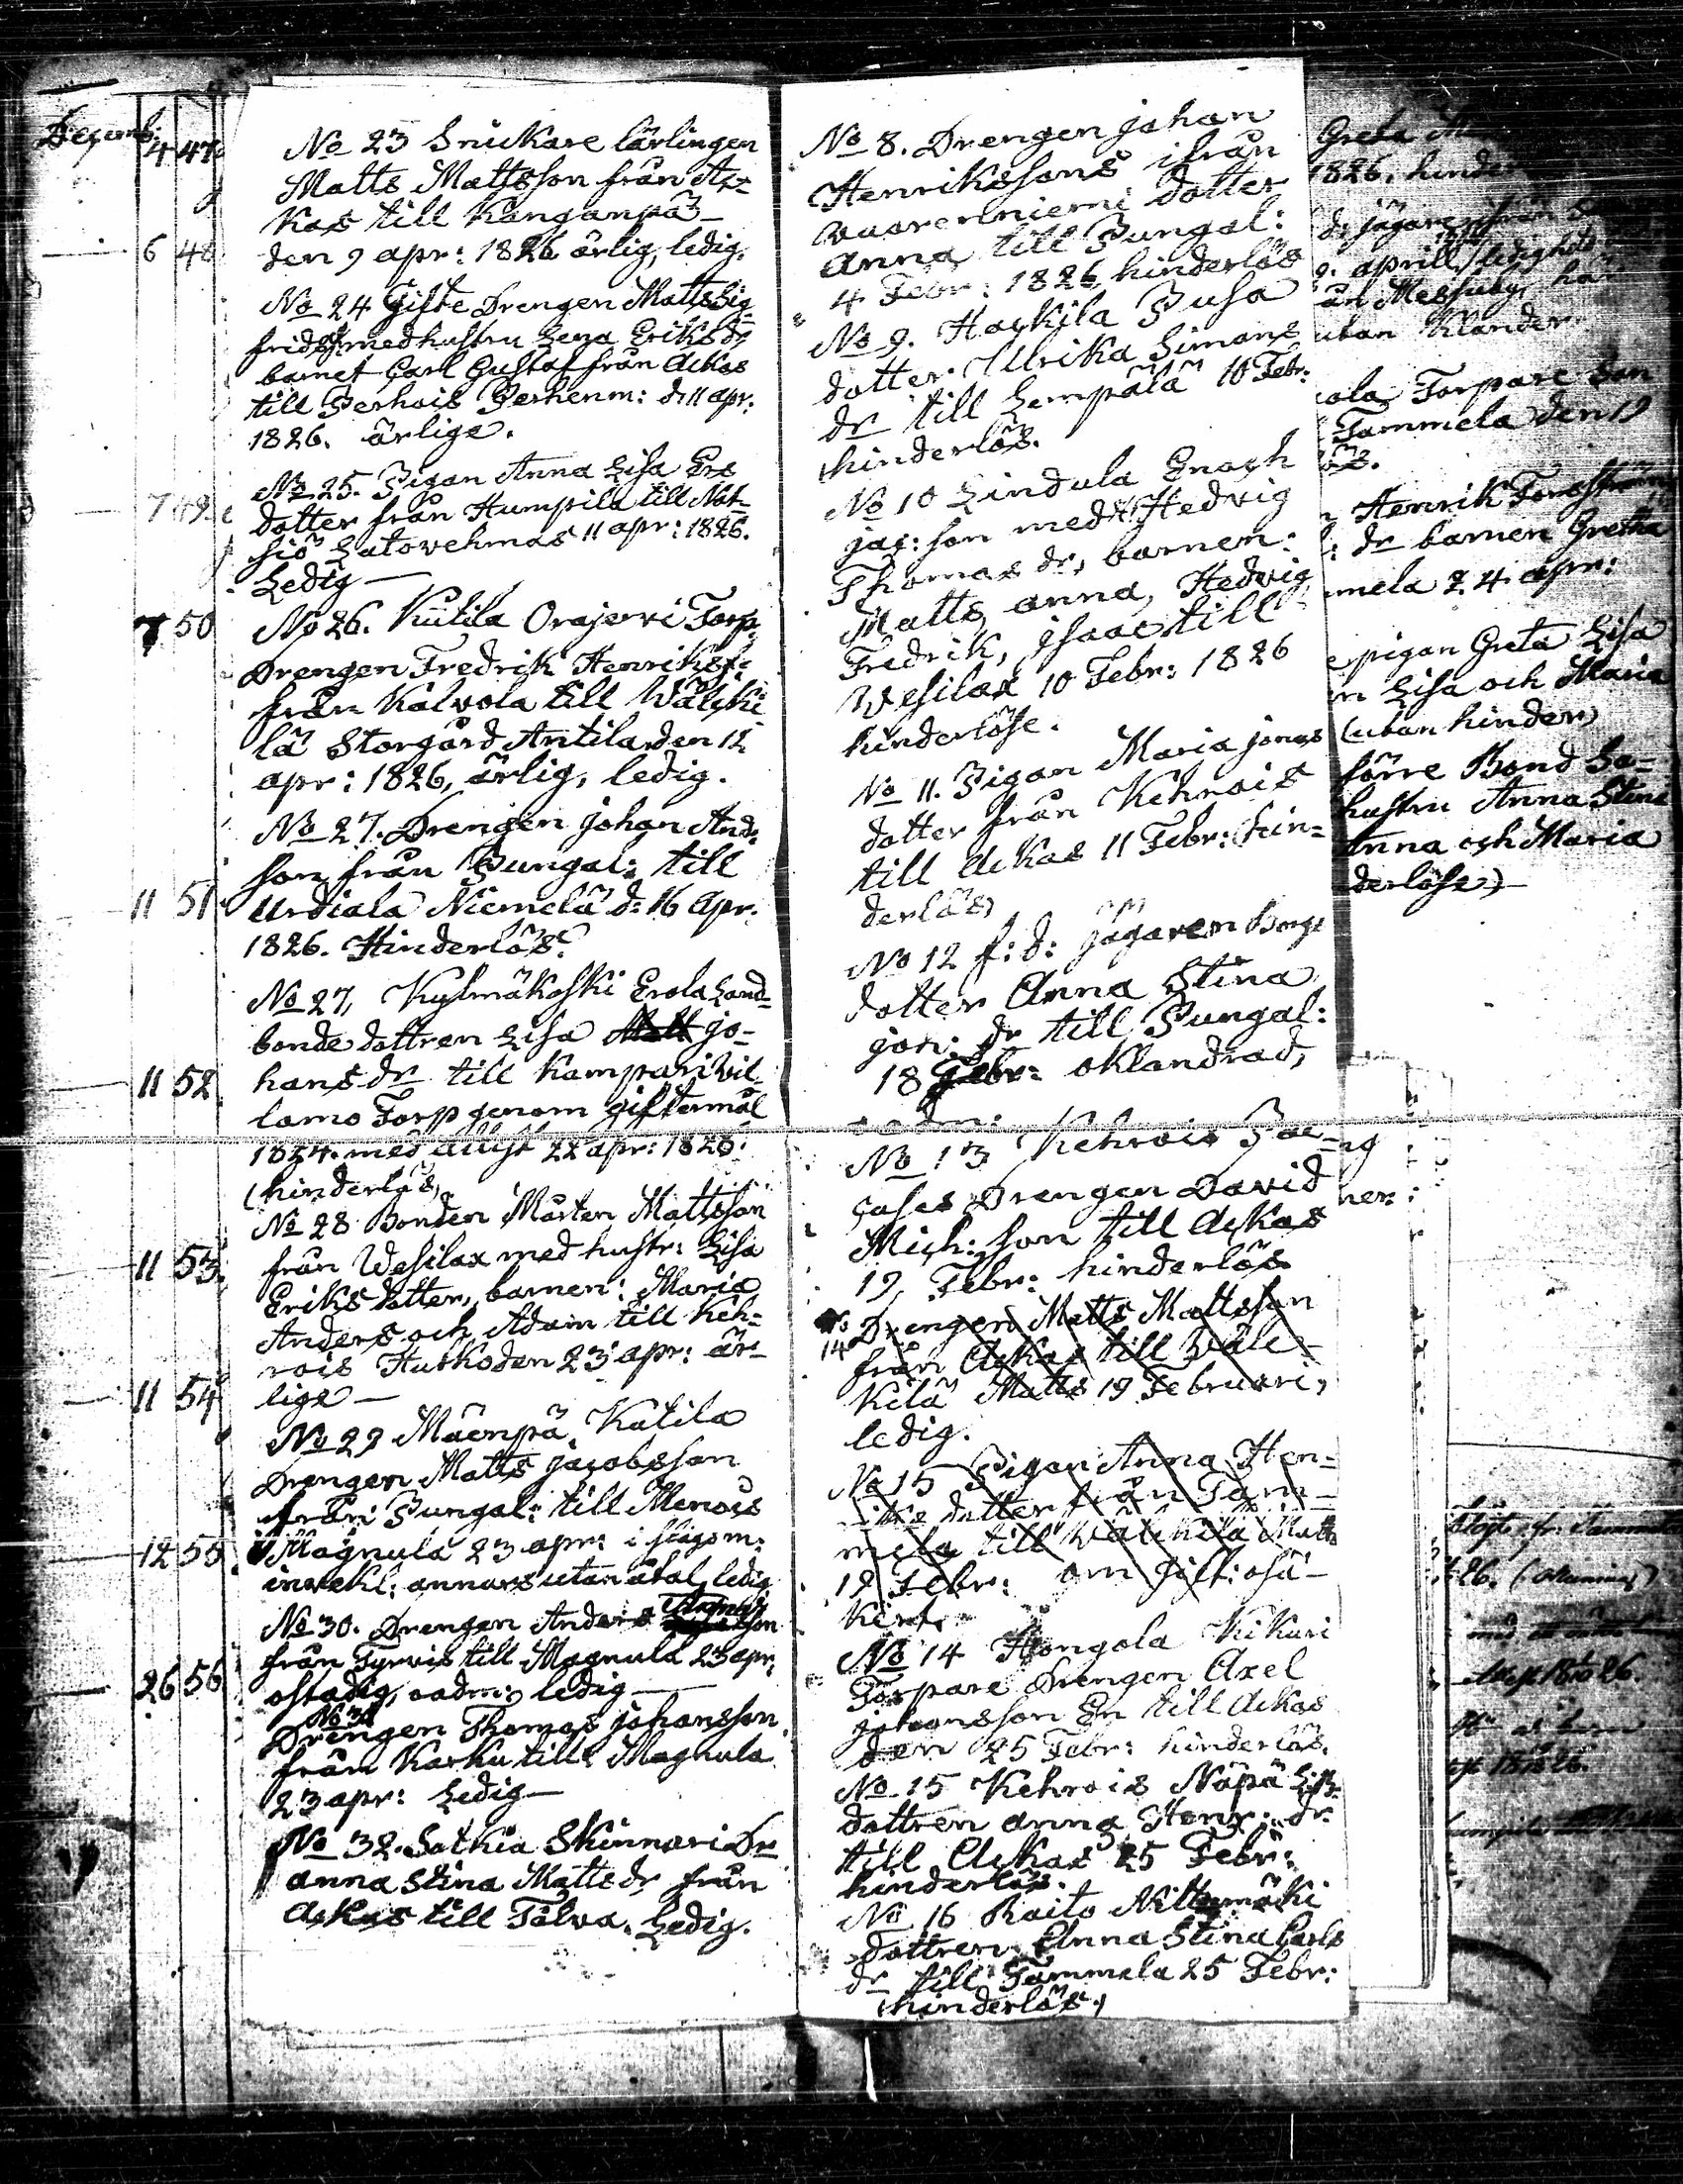 Decemb:
4 47
6 48
7 49
7 50
11 51
11 52
11 53
11 54
12 55
26 56
No 23 Snickare lärlingen
Matts Mattsson från Ac-
kas till Kanganpä
den 9 apr: 1826 ärlig, ledig.
No 24 Gifte Drengen Matts Sig-
frids med hustru Lena Eriks dr
barnet Carl Gustaf från Ackas
till Perhois Perhenm: d: 11 apr:
1826. ärlige.
No 25. Pigan Anna Lisa Ers
dotter från Humpila till Not-
siö Latovehmas 11 apr: 1826.
Ledig
No 26. Kutila Orajervi Torp
Drengen Fredrik Henriks
från Kalvola till Wälcki
lä Storgård Antila den 12
apr: 1826, ärlig, ledig.
No 27. Drengen Johan And:
son från Pungal: till
Urdiala Niemelä d: 16 apr.
1826. Hinderlös.
No 27, Kylmäkoski Erola Land-
bonde dottren Lisa jo-
hans dr till Kampari Vil-
lamo Torp genom giftermål
med 22 apr: 1826:
(hinderlös)
No 28 Bonden Mårten Mattsson
från Wesilax med hustr: Lisa
Eriks dotter, barnen: Maria
Anders och Adam till Keh-
rois Hutko den 23 apr: är-
lige
No 29 Mäenpä Kutila
Drengen Matts Jacobsson
från Pungal: till Menois
Magnula 23 apr: i
annars utan åtal, ledig
No 30. Drengen Anders son
från Tyrvis till Magnula 23 apr,
ostadig, ledig
No 31
Drengen Thomas Johansson
från Karku till Magnula
23 apr: Ledig
No 32. Sotkia Skinnari Dr
Anna Stina Matts dr från
Ackas till Tolva. Ledig.
No 8. Drengen Johan
Henrikssons ifrån
Waarenniemi dotter
Anna till Pungal:
4 Febr: 1826, hinderlös
No 9. Hackila Pusa
dotter Ulrika Simons
dr till Lempälä 10 Febr:
hinderlös.
No 10 Lindula Enoch
Jac: son med H: Hedvig
Thomas dr, barnen:
Matts, Anna, Hedvig
Fredrik, Isaac till
Wesilax 10 Febr: 1826
hinderlöse.
No 11. Pigan Maria Jonas
dotter från Kehrois
till Ackas 11 Febr: (hin-
derlös)
No 12 f: d: Jägaren Bergs
dotter Anna Stina
Joh: dr till Pungal:
18 Febr: oklandrad,
No 13 Kehrois
Drengen David
Mich: son till Ackas
19 Febr: hinderlös
No 14 Drengen Matts Mattsson
från Ackas till Wäl-
kilä Matts 19 Februari,
ledig.
No 15 Pigan Anna Hen-
riks dotter från Tam-
mela till Wälckilä Matts
19 Febr: om Gift: osä-
kert.
No 14 Hongola Kikuri
Torpare Drengen Axel
Johansson En till Ackas
den 25 Febr: hinderlös.
No 15 Kehrois Näpä
dottren Anna Henr: dr
till Ackas 25 Febr:
hinderlös.
No 16 Raito Nittymäki
dottren Anna Stina Carls
dr till Tammela 25 Febr:
(hinderlös)
Greta
1826. hinder
d: jägare ifrån
9. aprill ledighets
Messuby
utan Klander
Torpare Son
Tammela den 19
Henrik Forsström
dr barnen Gretha
mela 24 apr:
pigan Greta Lisa
Lisa och Maria
(utan hinder)
förre Bond So-
hustru Anna Stina
Anna och Maria
derlöse)
26.